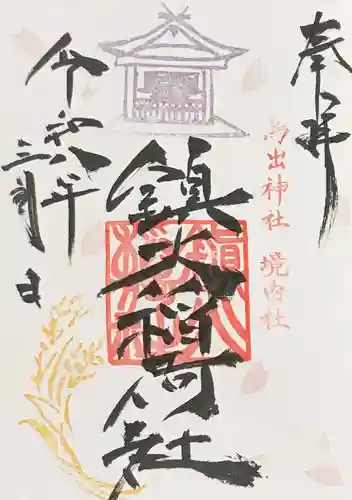 奉拝
鳥出神社 境内社
鎮火稲荷社
令和八年
三月 日